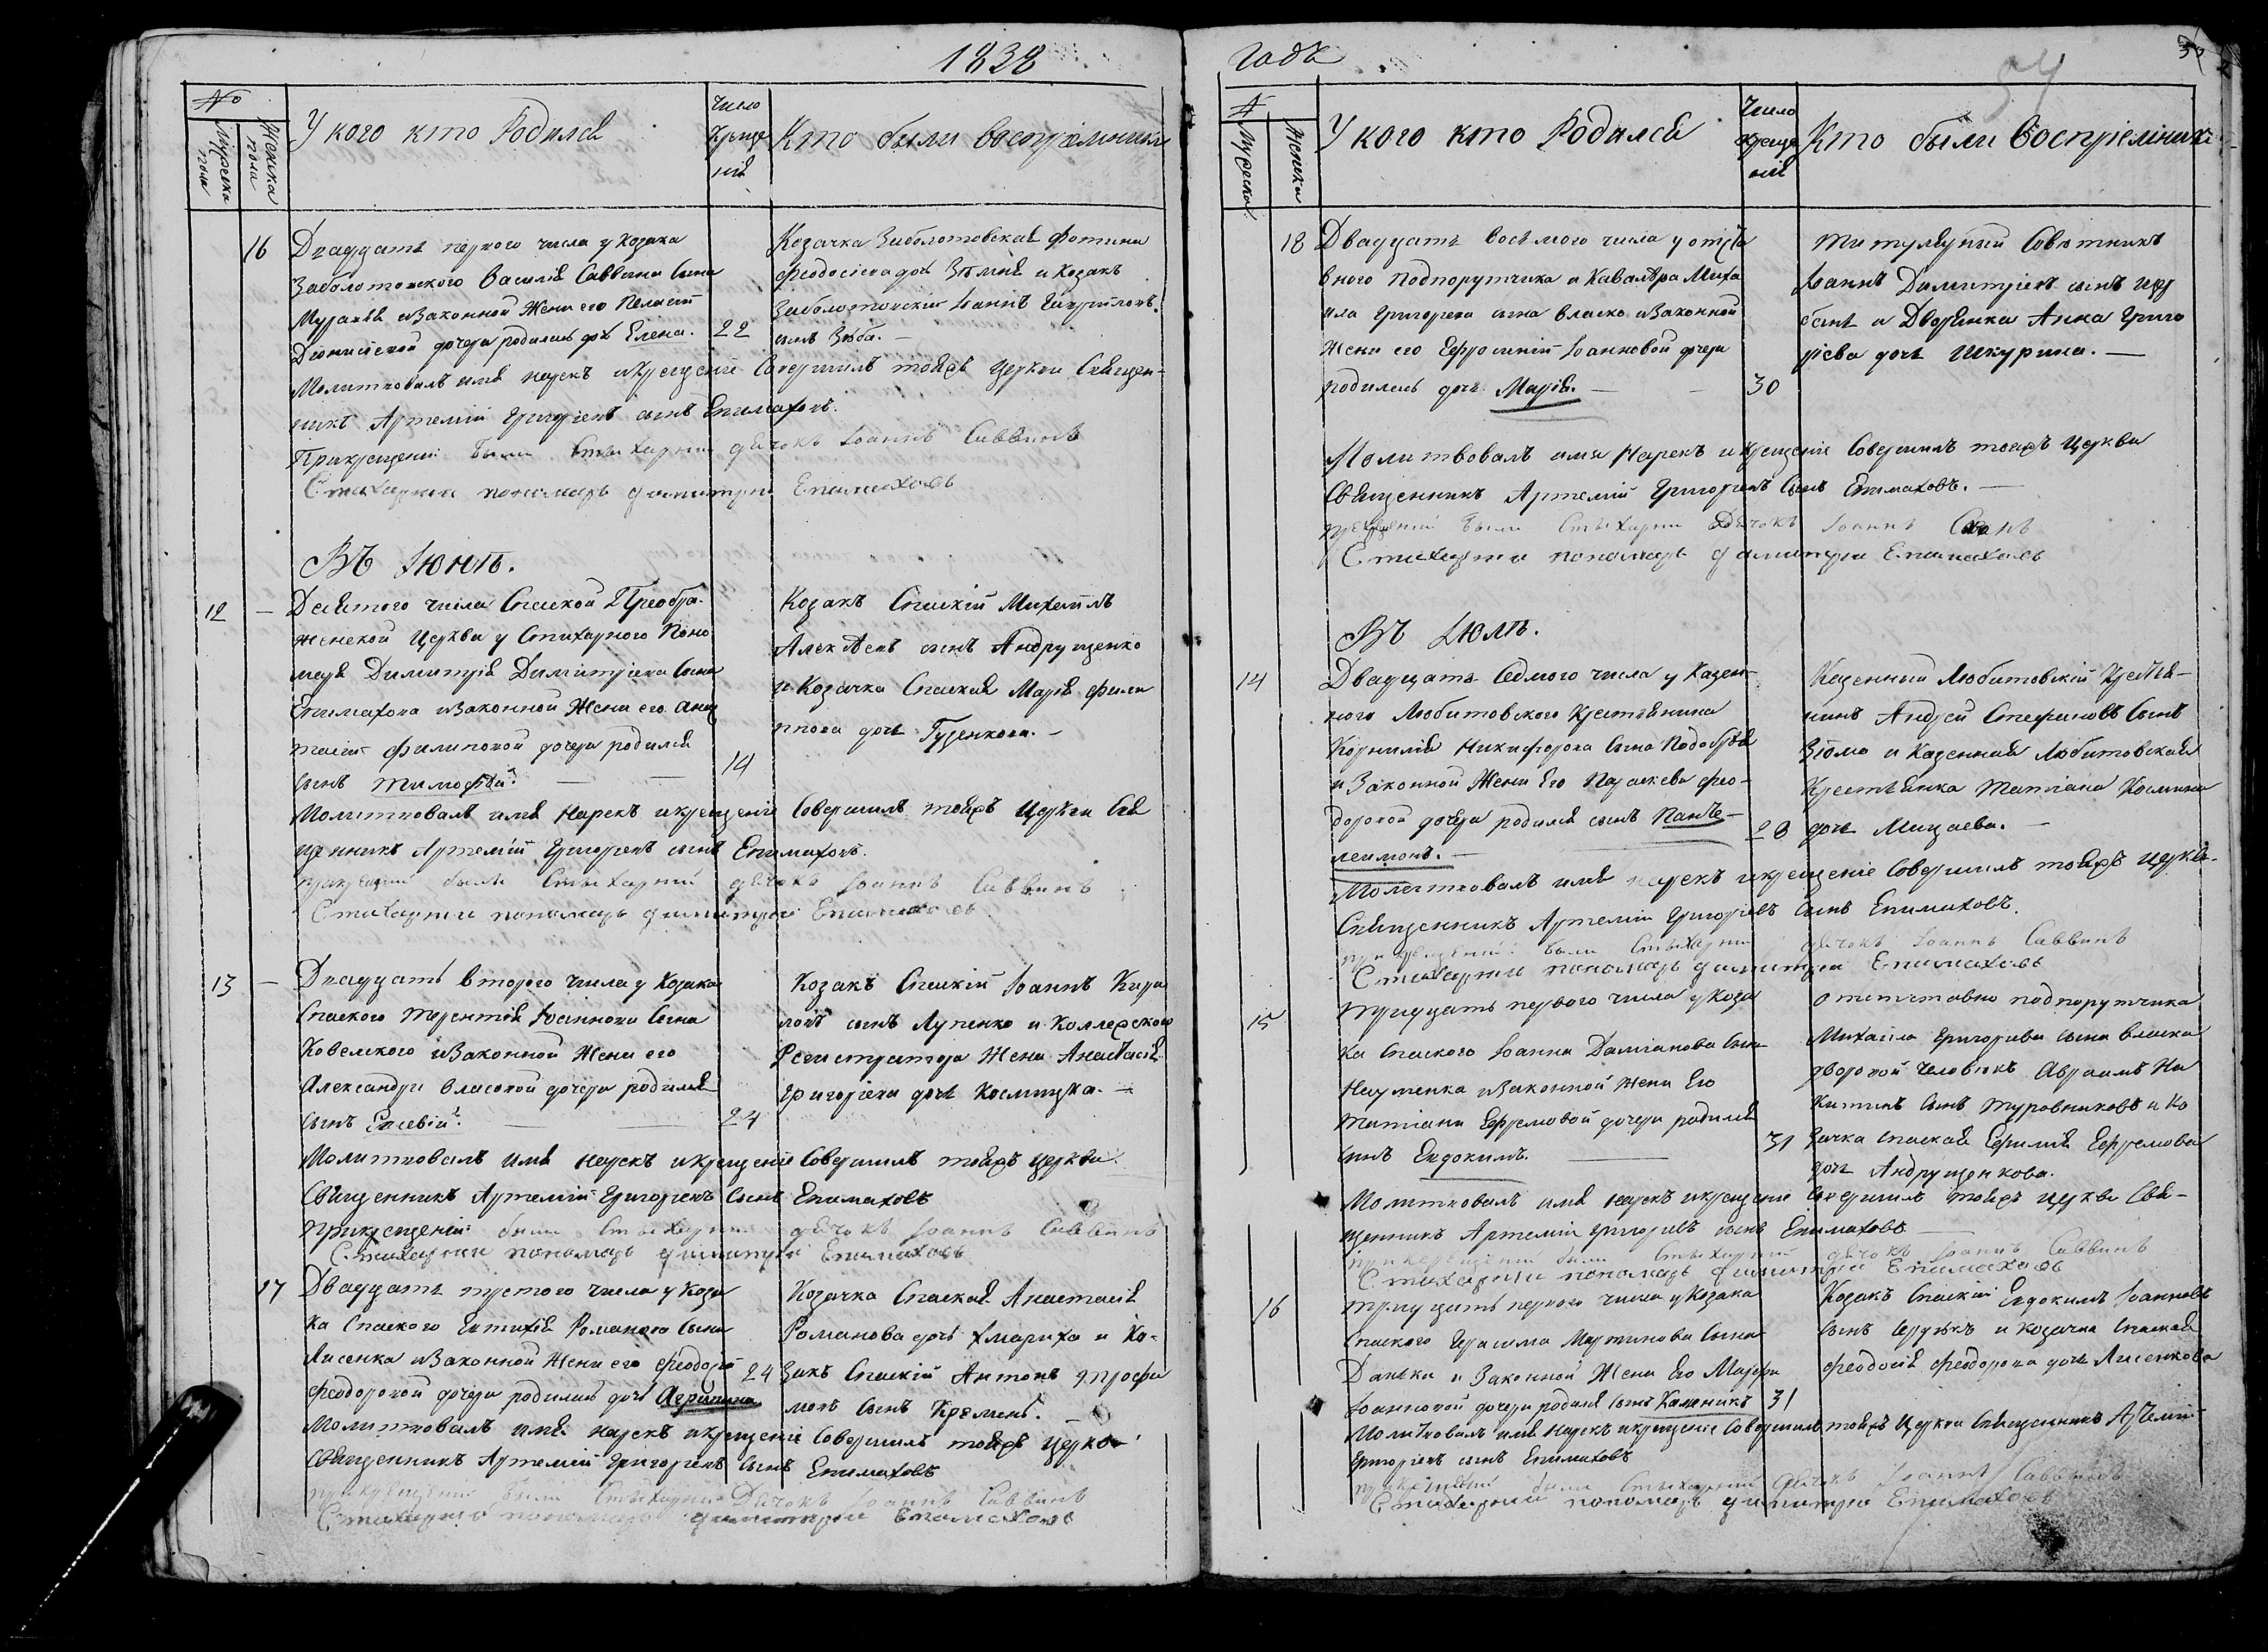 1838
№
Мужска пола
Женска пола
У кого кто Родился
Число Креще нія
Кто были воспріемники
16
Двадцать перваго числа у Козака
Заболотовского Василія Саввина Сына
Мурая и Законной Жены его Пелагіи
Діонисіевой дочери родилась дочь Елена.
22
Козачка Заболотовская Фотина
Феодосіева дочь и Козакъ
Заболотовскій Іоаннъ Гавриловъ
сынъ Зюба.
Молитвовалъ имя нарекъ и крещеніе Совершилъ тояжъ Церкви Священ-
никъ Артемій Григоріевъ сынъ Епимаховъ.
Прикрещеніи были Стыхарній дячокъ Іоаннъ Саввинъ
Стихарній пономарь Димитрій Епимаховъ
Въ Іюнѣ.
12
Девятого числа Спаской Преобра-
женской Церкви у Стихарного Поно
маря Димитрія Димитріева Сына
Епимахова и Законной Жены его Анас
тасіи Филиповой дочери родился
сынъ Тимофей.
14
Козакъ Спаскій Михаилъ
Алексѣевъ сынъ Андрущенко
и Козачка Спаская Марія Фили
ппова дочь Гузенкова.
Молитвовалъ имя Нарекъ и крещеніе Совершилъ тояжъ Церкви Свя
щенникъ Артемій Григоріевъ сынъ Епимаховъ.
прикрещеніи были Стыхарній дячокъ Іоаннъ Саввинъ
Стихарній пономарь Димитрій Епимаховъ
13
Двадцать второго числа у Козака
Спаского Терентія Іоаннова Сына
Ковемского и Законной Жены его
Александры Власовой дочери родился
сынъ Евсевій.
24
Козакъ Спаскій Іоаннъ Кири
ловъ сынъ Лупенко и Коллежского
Регистратора Жена Анастасія
Григоріева дочь
Молитвовалъ имя нарекъ и крещеніе Совершилъ тояжъ церкви
Священникъ Артемій Григоріевъ Сынъ Епимаховъ
Прикрещеніи были Стыхарній дячокъ Іоаннъ Саввинъ
Стихарній пономарь Димитрій Епимаховъ
17
Двадцать третого числа у Коза
ка Спаского Евтихія Романова Сына
Лисенка и Законной Жены его Феодоры
Феодоровой дочери родилась дочь Агрипина
24
Козачка Спаская Анастасія
Романова дочь Хмариха и Ко-
закъ Спаскій Антонъ Трофи
мовъ Сынъ Кремень.
Молитвовалъ имя нарекъ и крещеніе Совершилъ тояжъ церкви
Священникъ Артемій Григоріевъ Сынъ Епимаховъ
прикрещеніи были Стыхарній Дячокъ Іоаннъ Саввинъ
Стихарній пономарь Димитрій Епимаховъ
года
Мужска
Женска
У кого кто Родился
Число Креще нія
Кто были Воспріемники
18
Двадцать восьмого числа у отста
вного Подпорутчика и Кавалѣра Миха
ила Григорева сына Власко и Законной
Жены его Ефросиніи Іоанновой дочери
родилась дочь Марія.
30
Титулярный Совѣтникъ
Іоаннъ Димитріевъ сынъ
и Дворянка Анна Григо
ріева дочь Шкурина.
Молитвовалъ имя Нарекъ и крещеніе Совершилъ тояжъ Церкви
Священникъ Артемій Григоріевъ Сынъ Епимаховъ.
были Стыхарни Дячокъ Іоаннъ
Стихарній пономарь Димитрій Епимаховъ
Въ Іюлѣ.
14
Двадцать Седмого числа у Казен-
ного Любитовского Крестянина
Корнилія Никифорова Сына
и Законной Жены Его Параскевы Фео-
доровой дочери родился сынъ Пантѣ-
леимонъ.
28
Казенный Любитовскій Крестя-
нинъ Андрей Стефановъ Сынъ
и Казенная Любитовская
Крестьянка Татіана Космина
дочь Мицаева.
Молитвовалъ имя нарекъ и крещеніе Совершилъ тояжъ Церкви-
Священникъ Артемій Григоріевъ Сынъ Епимаховъ.
при крещеніи были Стыхарній дячокъ Іоаннъ Саввинъ
Стихарній пономарь Димитрій Епимаховъ
15
Тридцать первого числа у Коза
ка Спаского Іоанна Даміанова Сына
Науменка и Законной Жены Его
Татіаны Ефремовой дочери родился
сынъ Евдокимъ.
31
Отставно подпорутчика
Михаила Григорива сына Власка
дворовой человѣкъ Авраамъ Ни
китинъ Сынъ Туровниковъ и Ко
зачка Спаская Ефимія Ефремова
дочь Андрущенкова.
Молитвовалъ имя нарекъ и крещеніе Совершилъ тояжъ церкви Свя-
щенникъ Артемій Григоріевъ сынъ Епимаховъ
были Стыхарній дячокъ Іоаннъ Саввинъ
Стихарній пономарь Димитрій Епимаховъ
16
Тридцать первого числа у Козака
Спаского Герасима Мартинова Сына
Данька и Законной Жены Его Марфы
Іоанновой дочери родился сынъ Каленикъ
31
Козакъ Спаскій Евдокимъ Іоанновъ
сынъ и козачка Спаская
Феодосія Феодорова дочь Лисенкова
Молитвовалъ имя Нарекъ и крещеніе Совершилъ тояжъ Церкви Священникъ Артемій
Григоріевъ сынъ Епимаховъ
были Стыхарній дячокъ Іоаннъ Саввинъ
Стихарній пономарь Димитрій Епимаховъ